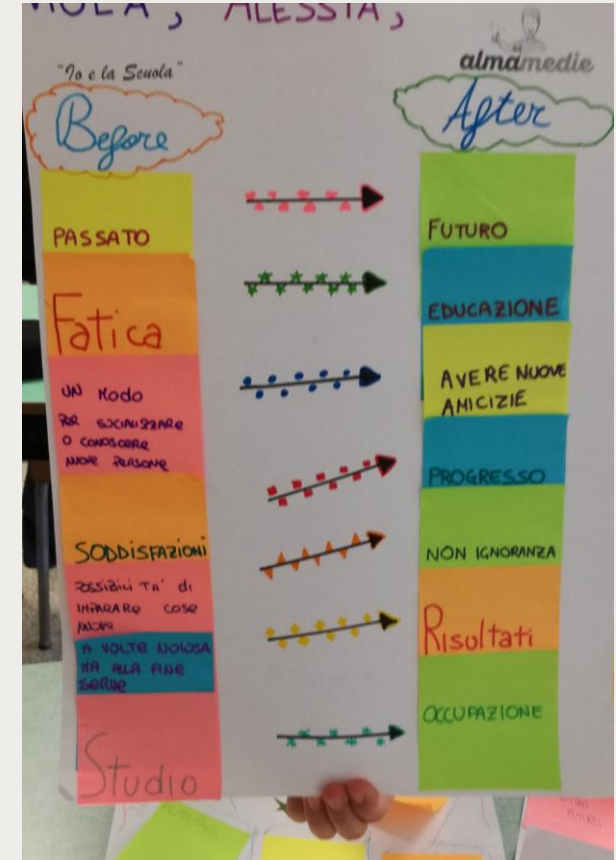 VIOLA, ALESSIA,
"Io e la Scuola"
almamedie
Before
After
PASSATO
Fatica
UN MODO
PER SOCIALIZZARE
O CONOSCERE
NUOVE PERSONE
SODDISFAZIONI
POSSIBILITA' di
IMPARARE COSE
NUOVE
A VOLTE NOIOSA
MA ALLA FINE
SERVE
Studio
FUTURO
EDUCAZIONE
AVERE NUOVE
AMICIZIE
PROGRESSO
NON IGNORANZA
Risultati
OCCUPAZIONE
FUTURO
FUTURO